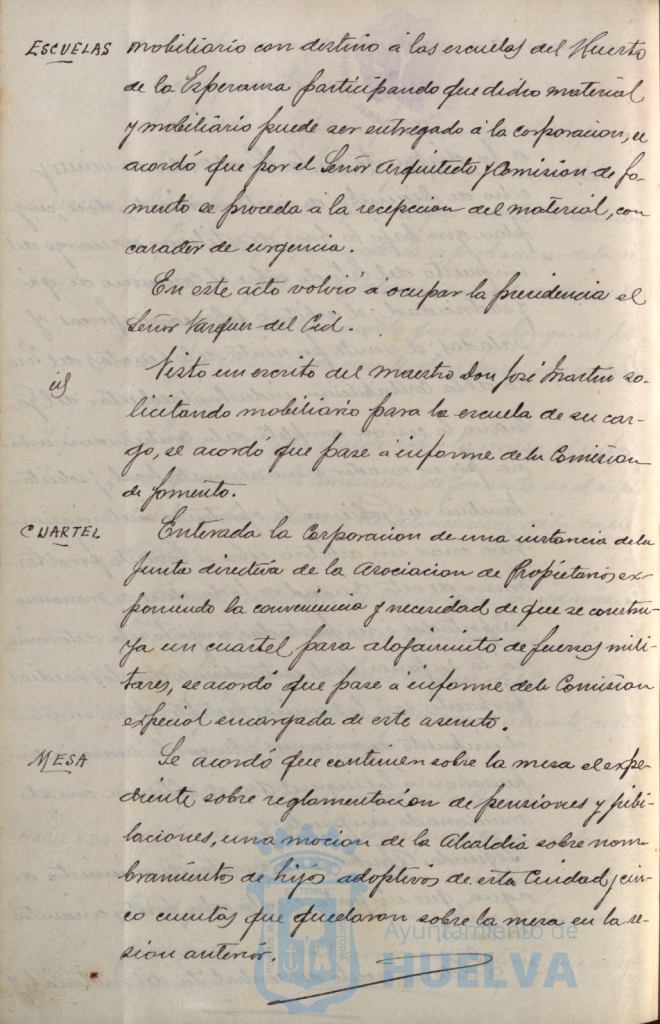 ESCUELAS mobiliario con destino á las escuelas del Huerto
de la Esperanza participando que dicho material
y mobiliario puede ser entregado á la corporacion, se
acordó que por el Señor Arquitecto y Comision de fo-
mento se proceda á la recepcion del material, con
caracter de urgencia.
En este acto volvió á ocupar la presidencia el
Señor Vazquez del Cid.
id Visto un escrito del maestro Don José Martin so-
licitando mobiliario para la escuela de su car-
go, se acordó que pase á informe de la Comision
de fomento.
CUARTEL Enterada la Corporacion de una instancia de la
Junta directiva de la Asociacion de Propietarios ex-
poniendo la conveniencia y necesidad de que se constru-
ya un cuartel para alojamiento de fuerzas mili-
tares, se acordó que pase á informe de la Comision
especial encargada de este asunto.
MESA Se acordó que continuen sobre la mesa el expe-
diente sobre reglamentacion de pensiones y jubi-
laciones, una mocion de la Alcaldia sobre nom-
bramientos de hijos adoptivos de esta Ciudad y cin-
co cuentas que quedaron sobre la mesa en la se-
sion anterior.
Ayuntamiento de
HUELVA